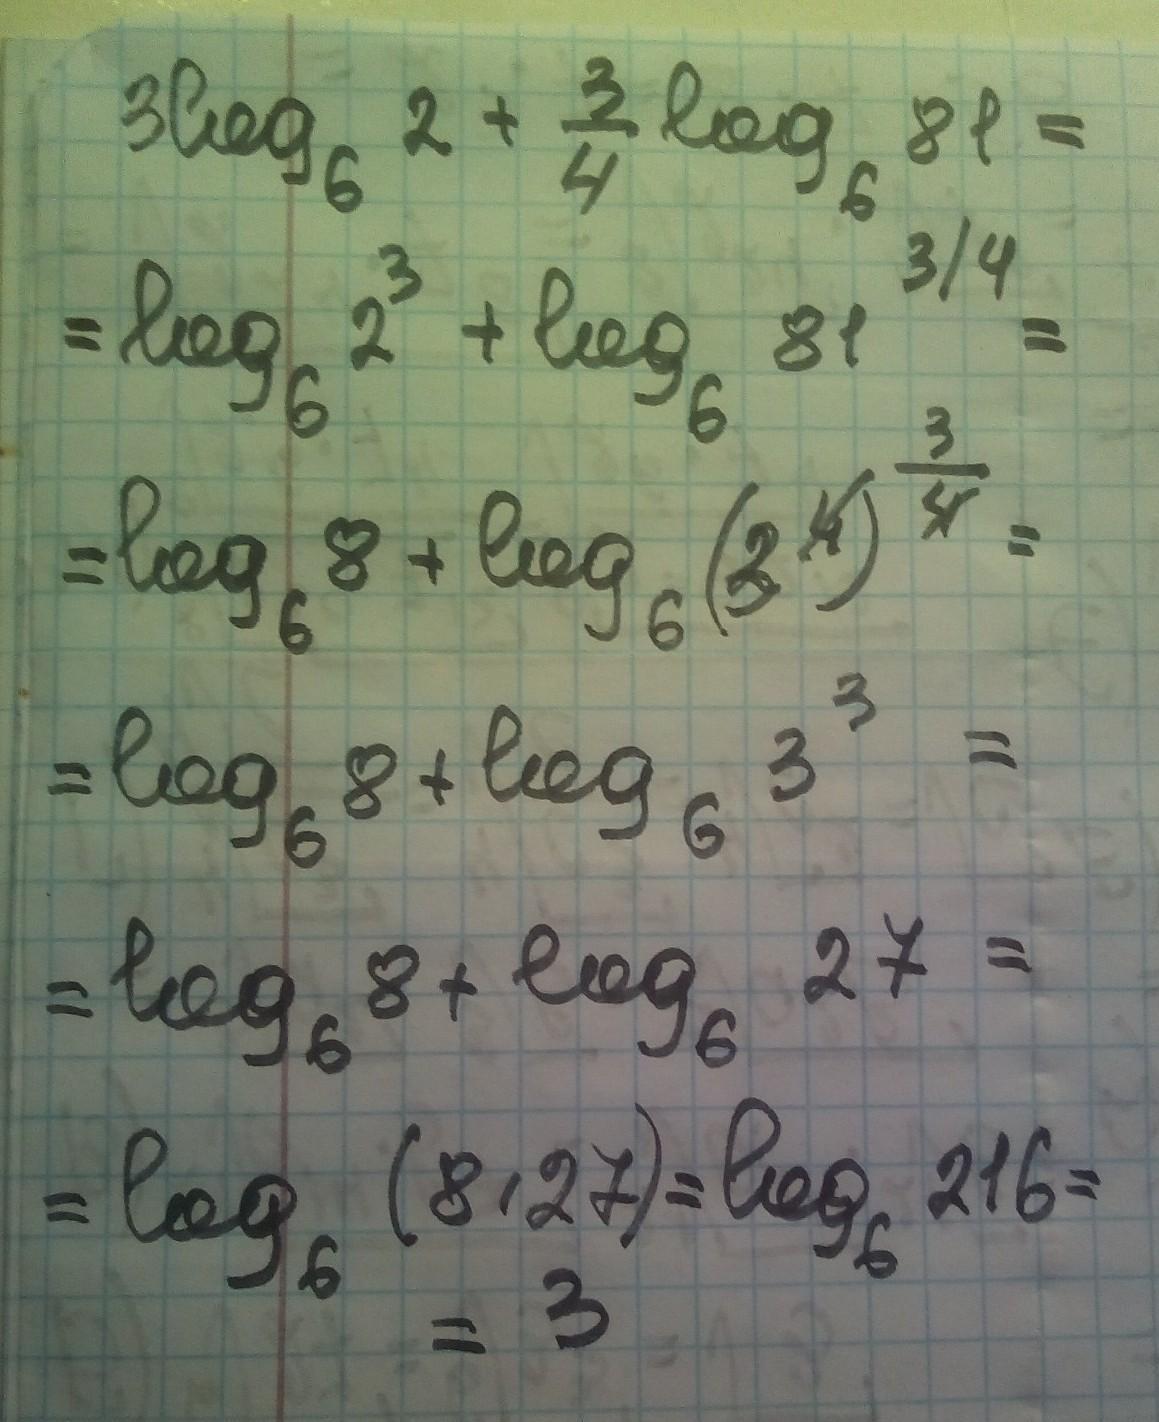 3log₆ 2 + 3/4 log₆ 81 =
= log₆ 2³ + log₆ 81^3/4 =
= log₆ 8 + log₆ (3⁴)^3/4 =
= log₆ 8 + log₆ 3³ =
= log₆ 8 + log₆ 27 =
= log₆ (8·27) = log₆ 216 =
= 3